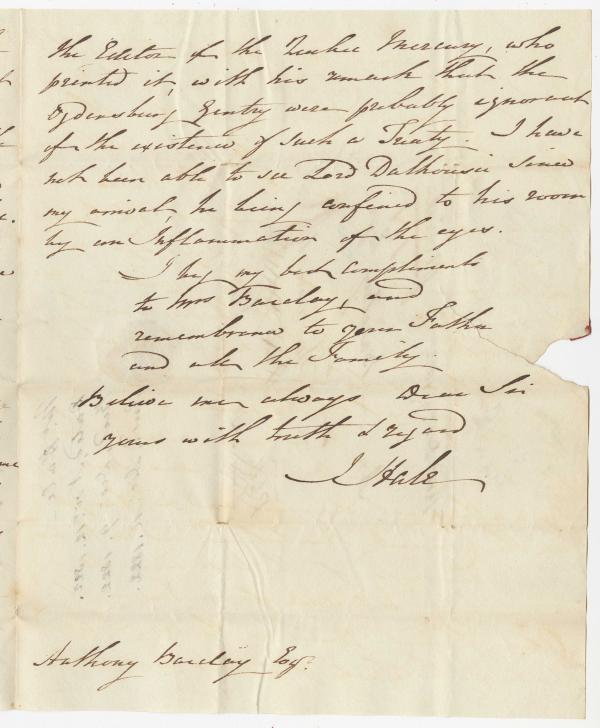 the Editor of the Quebec Mercury, who
printed it, with his remark that the
Ogdensburg Gentry were probably ignorant
of the existence of such a Treaty. I have
not been able to see Lord Dalhousie since
my arrival, he being confined to his room
by an Inflammation of the eyes.
I beg my best compliments
to Mrs Barclay, and
remembrance to your Father
and all the Family.
Believe me always Dear Sir
yours with truth & regard
J Hale
Anthony Barclay Esqr.